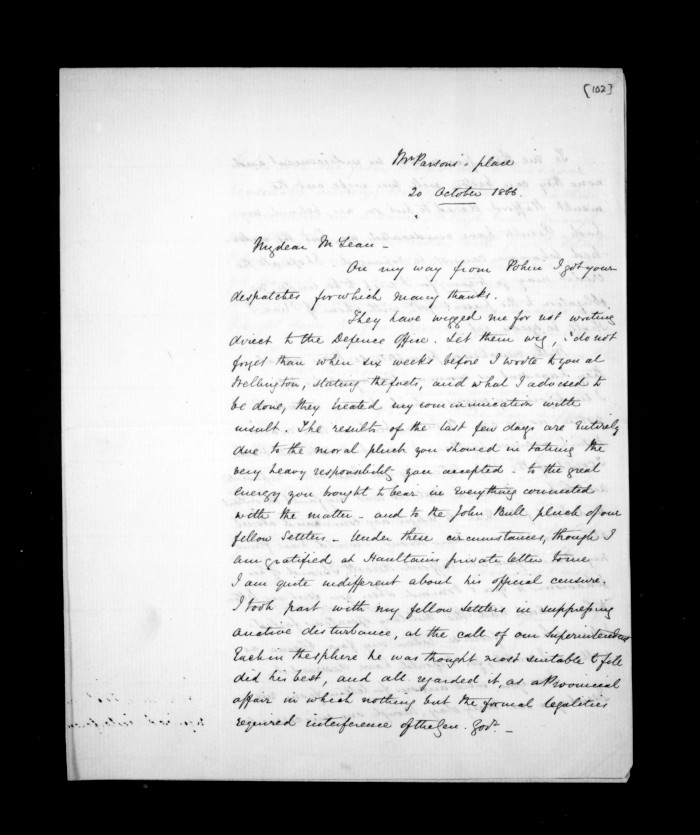 [102]
Mr Parsons's place
20 October 1866.
My dear McLean -
On my way from Pohui I got your
despatches for which many thanks.
They have wigged me for not writing
direct to the Defence Office. Let them wig, I do not
forget than when six weeks before I wrote to you at
Wellington, stating the facts, and what I advised to
be done, they treated my communication with
insult. The results of the last few days are entirely
due to the moral pluck you showed in taking the
very heavy responsibility you accepted - to the great
energy you bought to bear in everything connected
with the matter - and to the John Bull pluck of our
fellow Settlers - Under these circumstances, though I
am gratified at Haultain's private letter to me
I am quite indifferent about his official censure.
I took part with my fellow Settlers in suppressing
a native disturbance, at the call of our Superintendent
Each in the sphere he was thought most suitable to fill
did his best, and all regarded it, as a Provincial
affair in which nothing but the formal legalities
required interference of the Gen. Govt. -